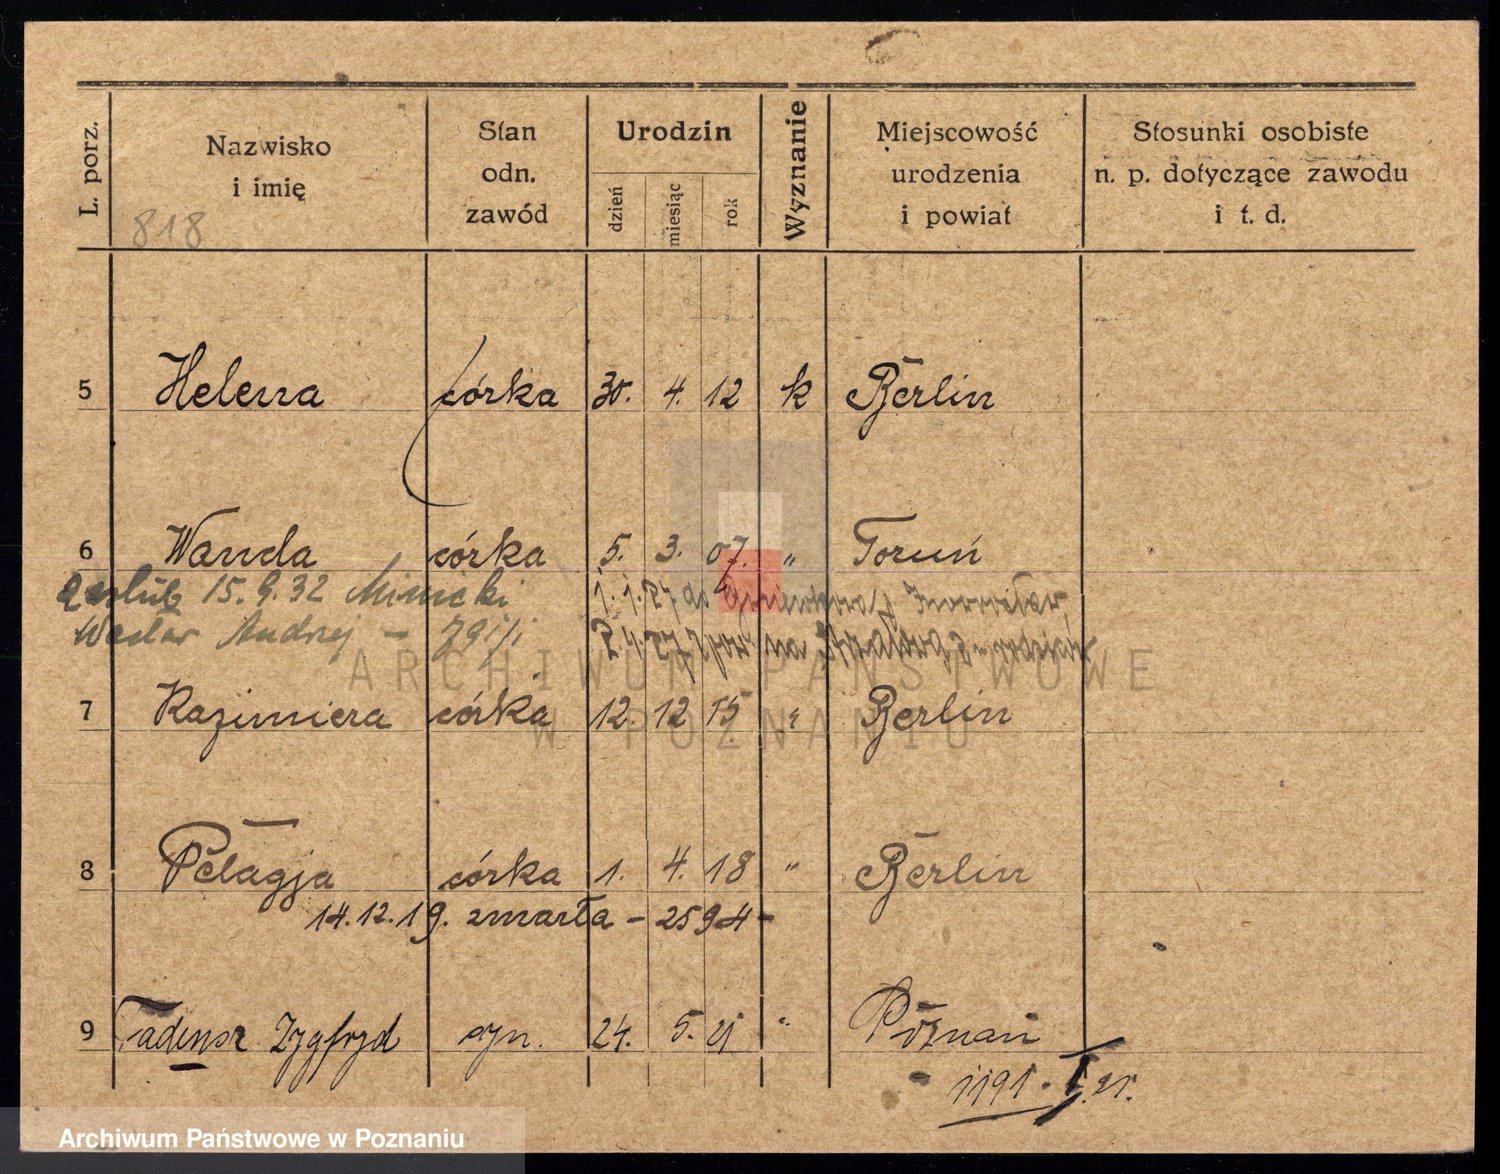 L. porz.
Nazwisko
i imię
Stan
odn.
zawód
Urodzin
dzień
miesiąc
rok
Wyznanie
Miejscowość
urodzenia
i powiat
Stosunki osobiste
n. p. dotyczące zawodu
i t. d.
818
5 Helena córka 30. 4. 12 k Berlin
6 Wanda córka 5. 3. 07. " Toruń
15.9.32
Andrzej -
7 Kazimiera córka 12. 12 15 " Berlin
8 Pelagja córka 1. 4. 18 " Berlin
14.12.19. zmarła - 2594 -
9 Tadeusz Zygfryd syn. 24. 5. 21 " Poznań
1191. I. 21.
ARCHIWUM PAŃSTWOWE
W POZNANIU
Archiwum Państwowe w Poznaniu